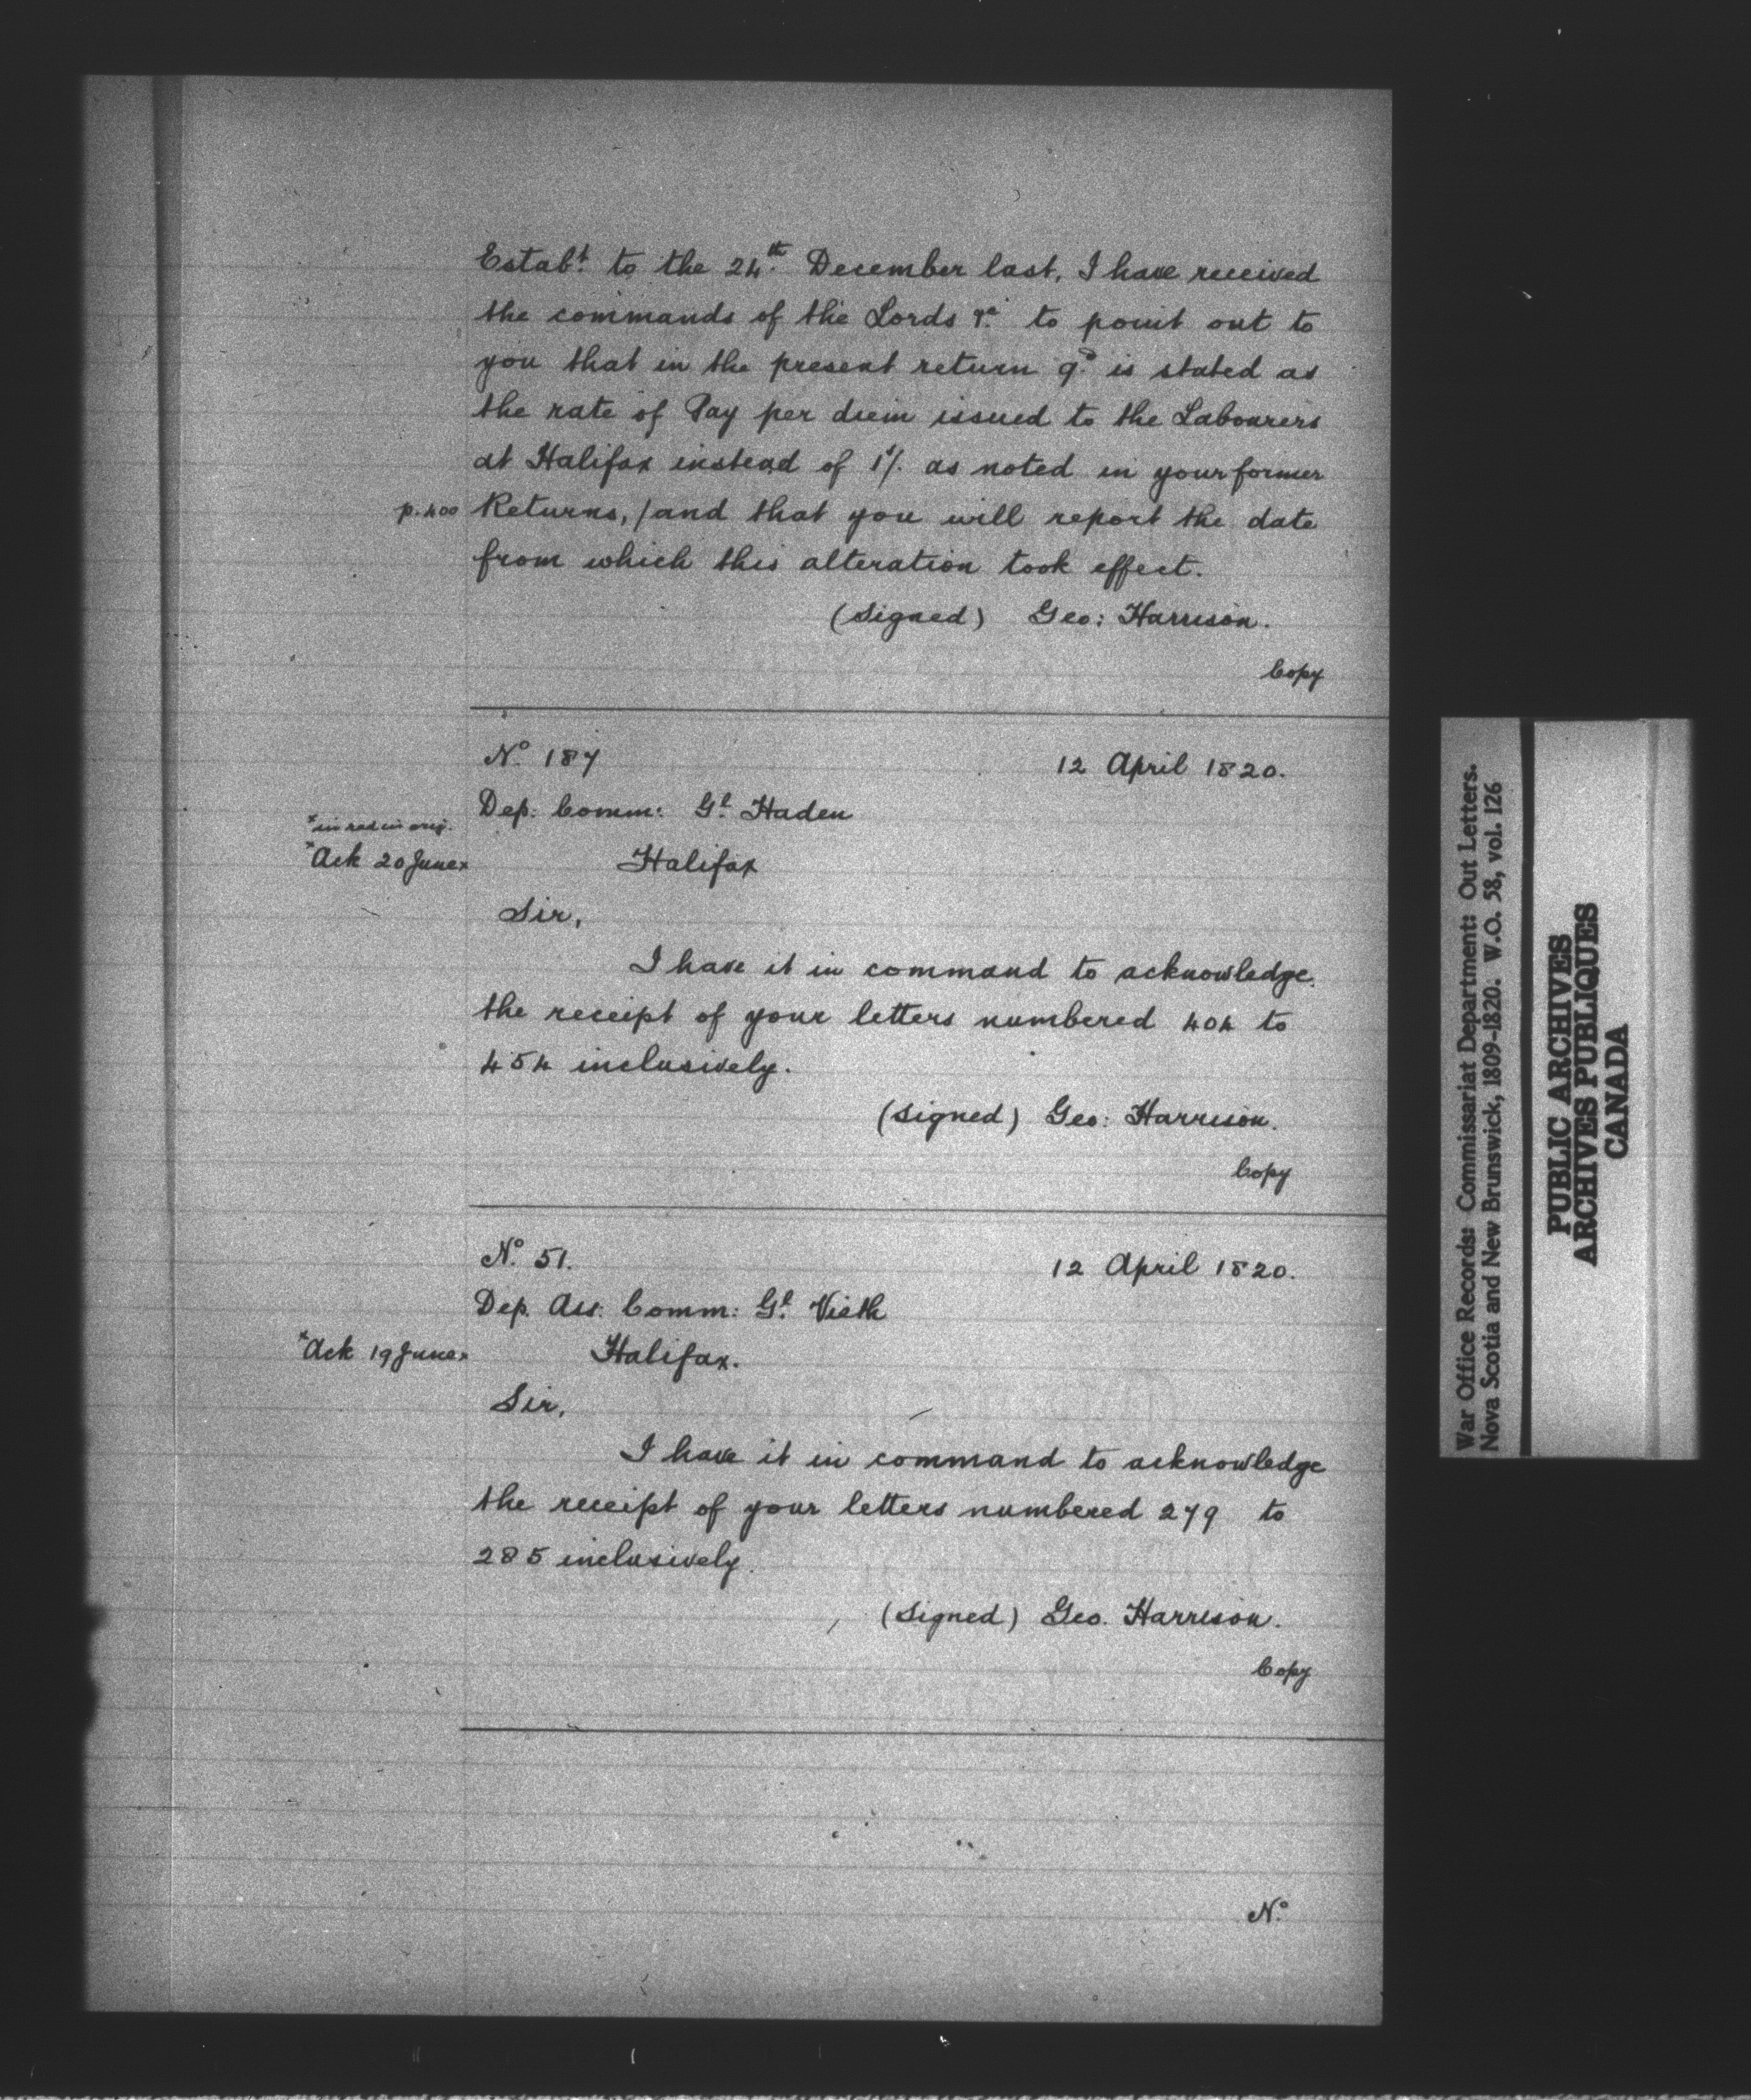 Estabt. to the 24th. December last, I have received
the commands of the Lords &c. to point out to
you that in the present return 9d. is stated as
the rate of Pay per diem issued to the Labourers
at Halifax instead of 1/. as noted in your former
p.400 Returns, / and that you will report the date
from which this alteration took effect.
(Signed) Geo: Harrison.
Copy
No. 187 12 April 1820.
Dep: Comm: Gl. Haden
*in red in orig.
*Ack 20 June* Halifax
Sir,
I have it in command to acknowledge
the receipt of your letters numbered 404 to
454 inclusively.
(Signed) Geo: Harrison.
Copy
No. 51. 12 April 1820.
Dep. Ass: Comm: Gl. Vieth
*Ack 19 June* Halifax.
Sir,
I have it in command to acknowledge
the receipt of your letters numbered 279 to
285 inclusively.
(Signed) Geo. Harrison.
Copy
No.
War Office Records: Commissariat Department: Out Letters.
Nova Scotia and New Brunswick, 1809-1820. W.O. 58, vol. 126
PUBLIC ARCHIVES
ARCHIVES PUBLIQUES
CANADA